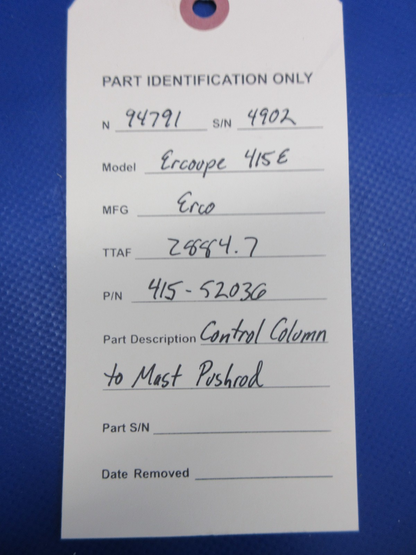 PART IDENTIFICATION ONLY
N 94791 S/N 4902
Model Ercoupe 415E
MFG Erco
TTAF 2884.7
P/N 415-52036
Part Description Control Column
to Mast Pushrod
Part S/N
Date Removed